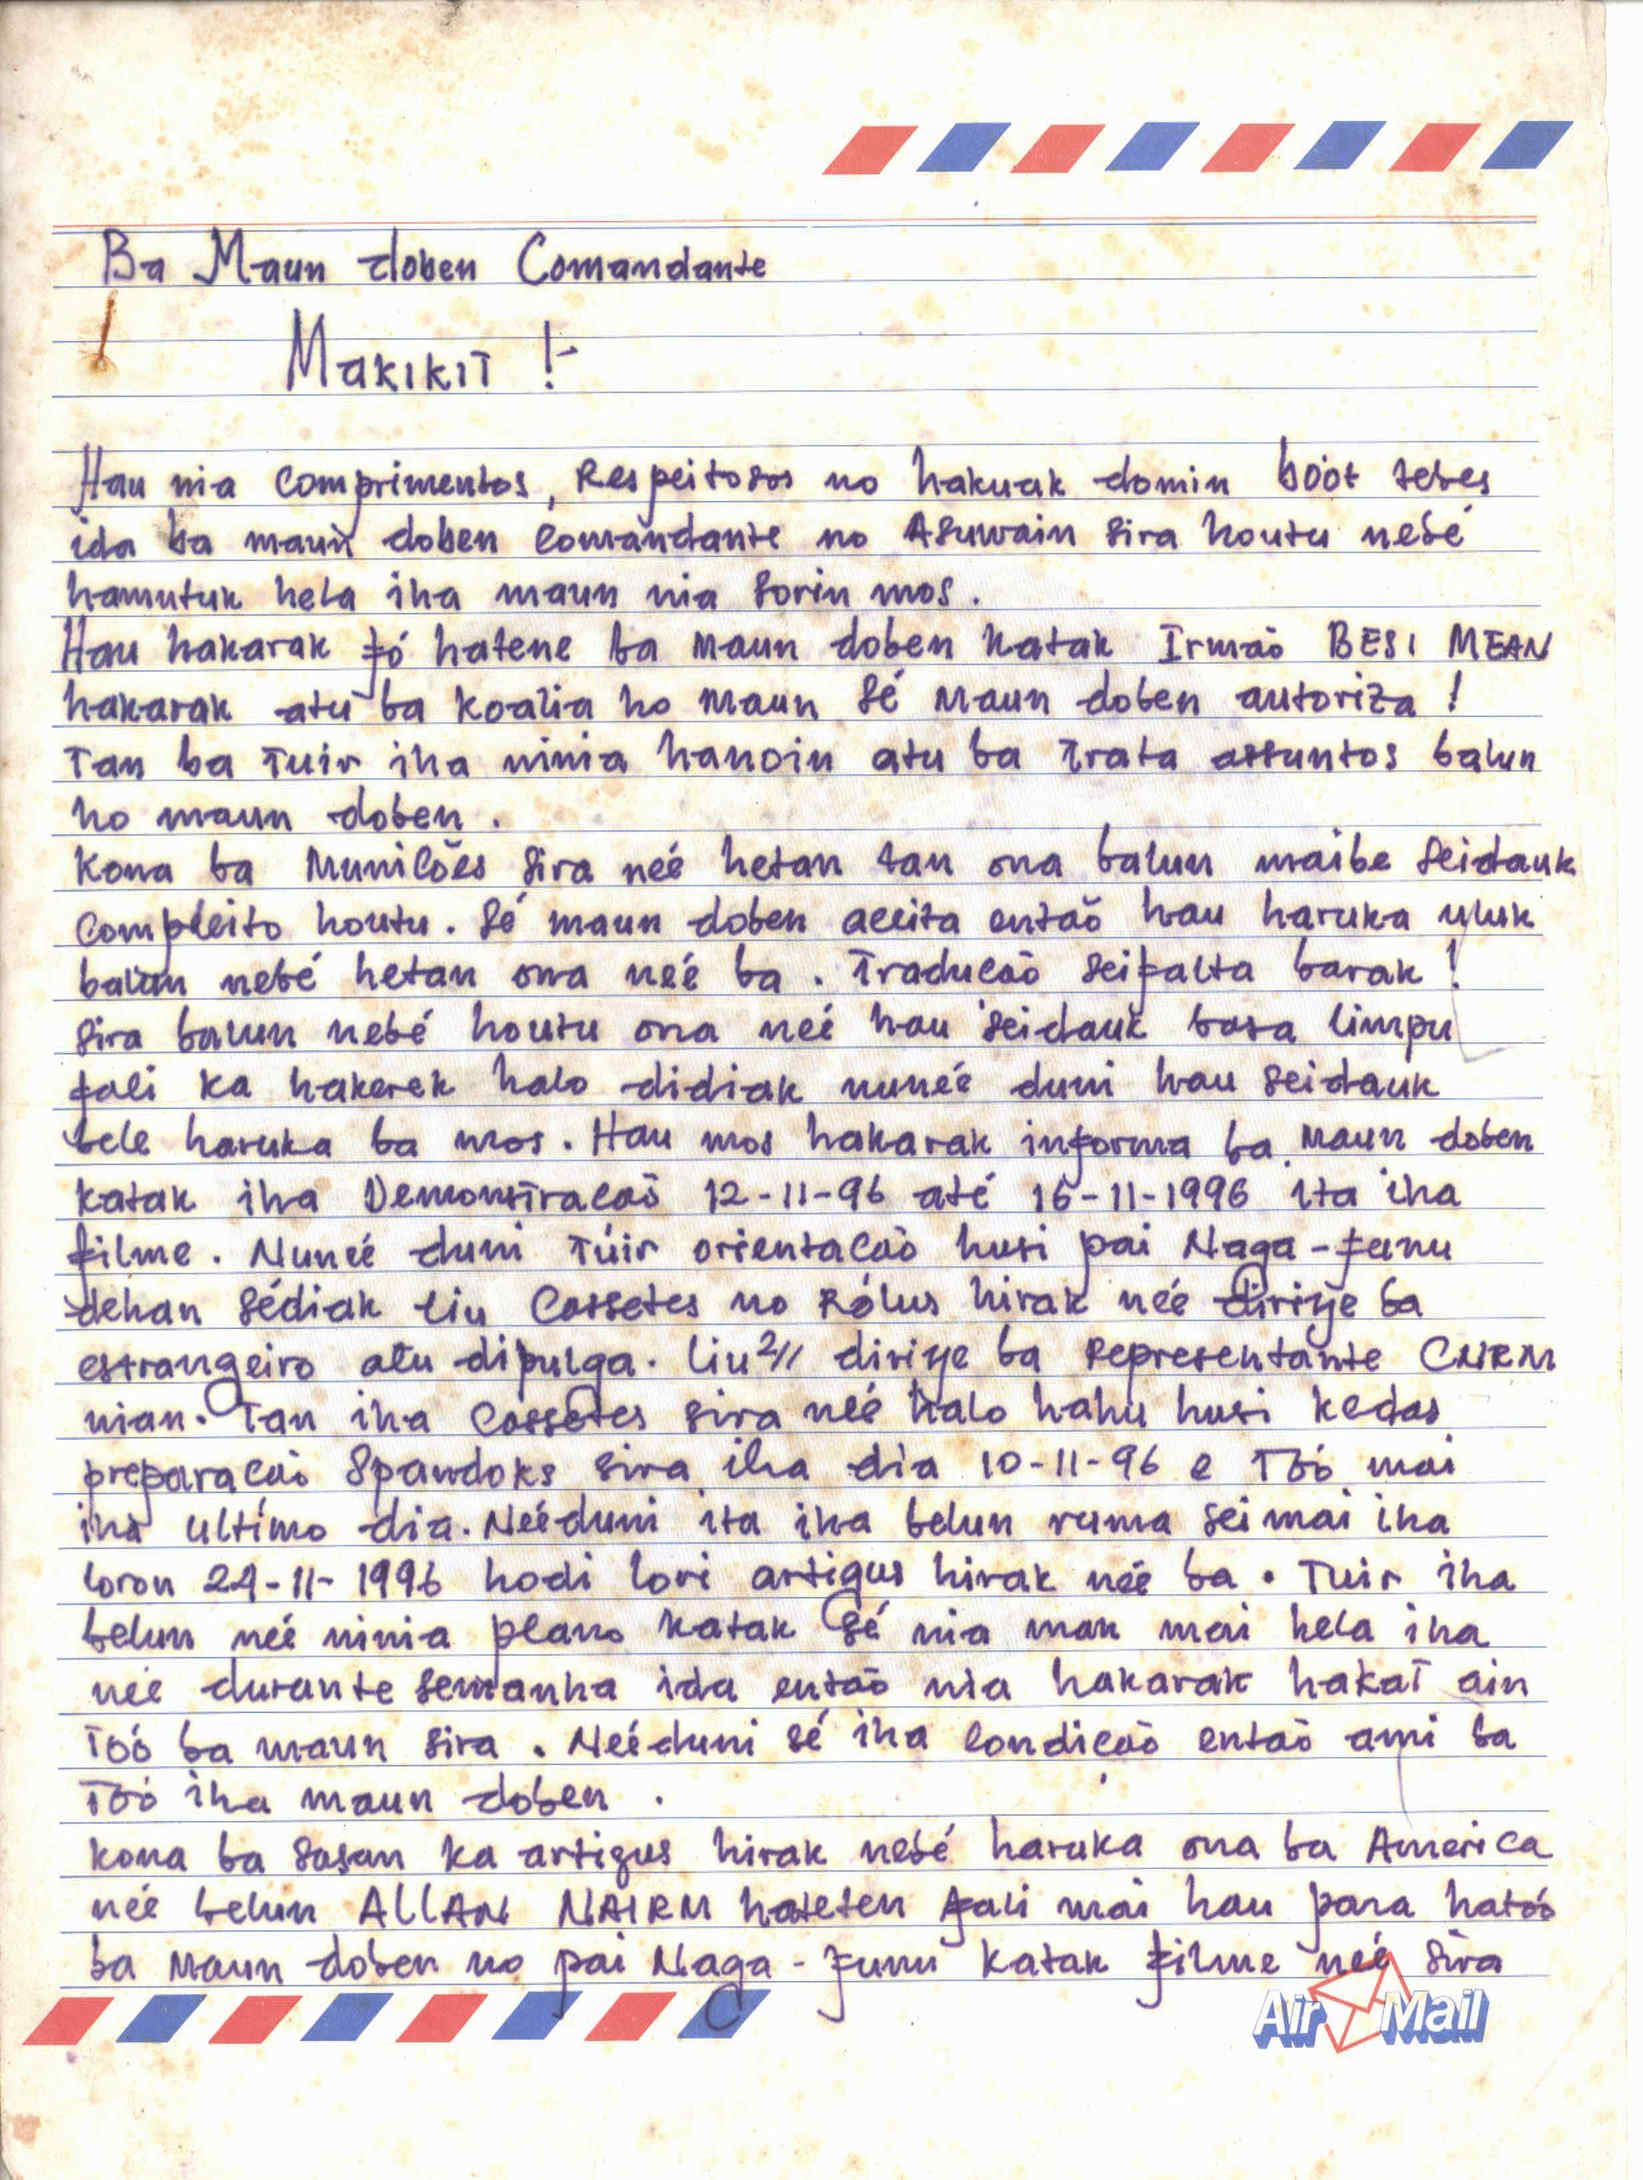 Ba Maun doben Comandante
Makikit !-
Hau nia comprimentos, Respeitosos no hakuak domin böot tebes
ida ba maun doben comandante no Asuwain sira houtu nebé
hamutuk hela iha maun nia sorin mos.
Hau hakarak fó hatene ba maun doben katak Irmão BESI MEAN
hakarak atu ba koalia ho maun sé maun doben autoriza !
Tan ba Tuir iha ninia hanoin atu ba trata assuntos balun
ho maun doben.
Kona ba Municões sira neé hetan tan ona balun maibe seidauk
compleito houtu. Sé maun doben aceita entaõ hau haruka uluk
balun nebé hetan ona neé ba. Traducaõ seifalta barak !
Sira balun nebé houtu ona neé hau seidauk basa limpu
fali ka hakerek halo didiak nuneé duni hau seidauk
bele haruka ba mos. Hau mos hakarak informa ba maun doben
katak iha Demonstracaõ 12-11-96 até 16-11-1996 ita iha
filme. Nuneé duni túir orientacaõ husi pai Naga-funu
dehan sédiak liu Cassetes no Rólus hirak neé dirije ba
estrangeiro atu dipulga. liu2// dirije ba Representante CNRM
nian. Tan iha Cassetes sira neé halo hahu husi kedas
preparacaõ Spandoks sira iha dia 10-11-96 e Toó mai
iha ultimo dia. Neéduni ita iha belun ruma sei mai iha
loron 24-11-1996 hodi lori artigus hirak neé ba. Tuir iha
belun neé ninia plano katak Sé nia mak mai hela iha
neé durante semanha ida entaõ nia hakarak hakat ain
Toó ba maun sira. Neéduni sé iha condicaõ entaõ ami ba
Toó iha maun doben.
Kona ba sasan ka artigus hirak nebé haruka ona ba America
neé belun ALLAN NAIRM hateten fali mai hau para hatóo
ba maun doben no pai Naga-funu katak filme neé sira
Air Mail